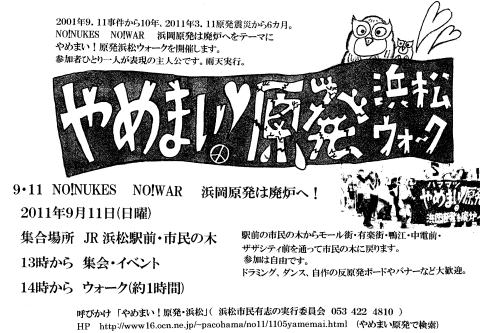 2001年9.11事件から10年、2011年3.11原発震災から6カ月。
NO!NUKES　NO!WAR　浜岡原発は廃炉へをテーマに
やめまい！原発浜松ウォークを開催します。
参加者ひとり一人が表現の主人公です。雨天実行。
やめまい！原発 浜松
ウォーク
9・11　NO!NUKES　NO!WAR　浜岡原発は廃炉へ！
2011年9月11日(日曜)
集合場所　JR浜松駅前・市民の木
13時から　集会・イベント
14時から　ウォーク(約1時間)
やめまい!原発
駅前の市民の木からモール街・有楽街・鴨江・中電前・
ザザシティ前を通って市民の木に戻ります。
参加は自由です。
ドラミング、ダンス、自作の反原発ボードやバナーなど大歓迎。
呼びかけ「やめまい！原発・浜松」（浜松市民有志の実行委員会　053 422 4810　）
HP　http://www16.ocn.ne.jp/~pacohama/no11/1105yamemai.html　（やめまい原発で検索）